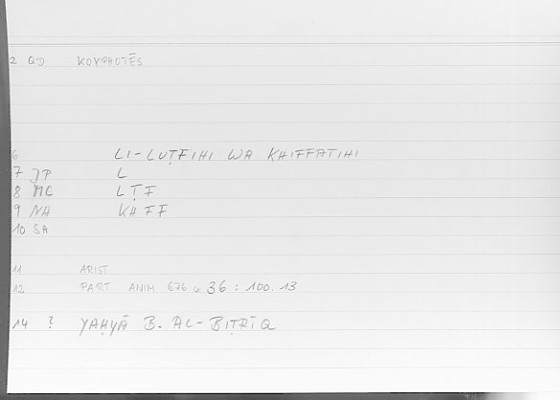 2 QD KOYPHOTĒS
6 LI-LUṬFIHI WA KHIFFATIHI
7 JP L
8 MC LṬF
9 NA KHFF
10 SA
11 ARIST
12 PART ANIM 676 a 36 : 100.13
14 ? YAḤYĀ B. AL-BIṬRĪQ